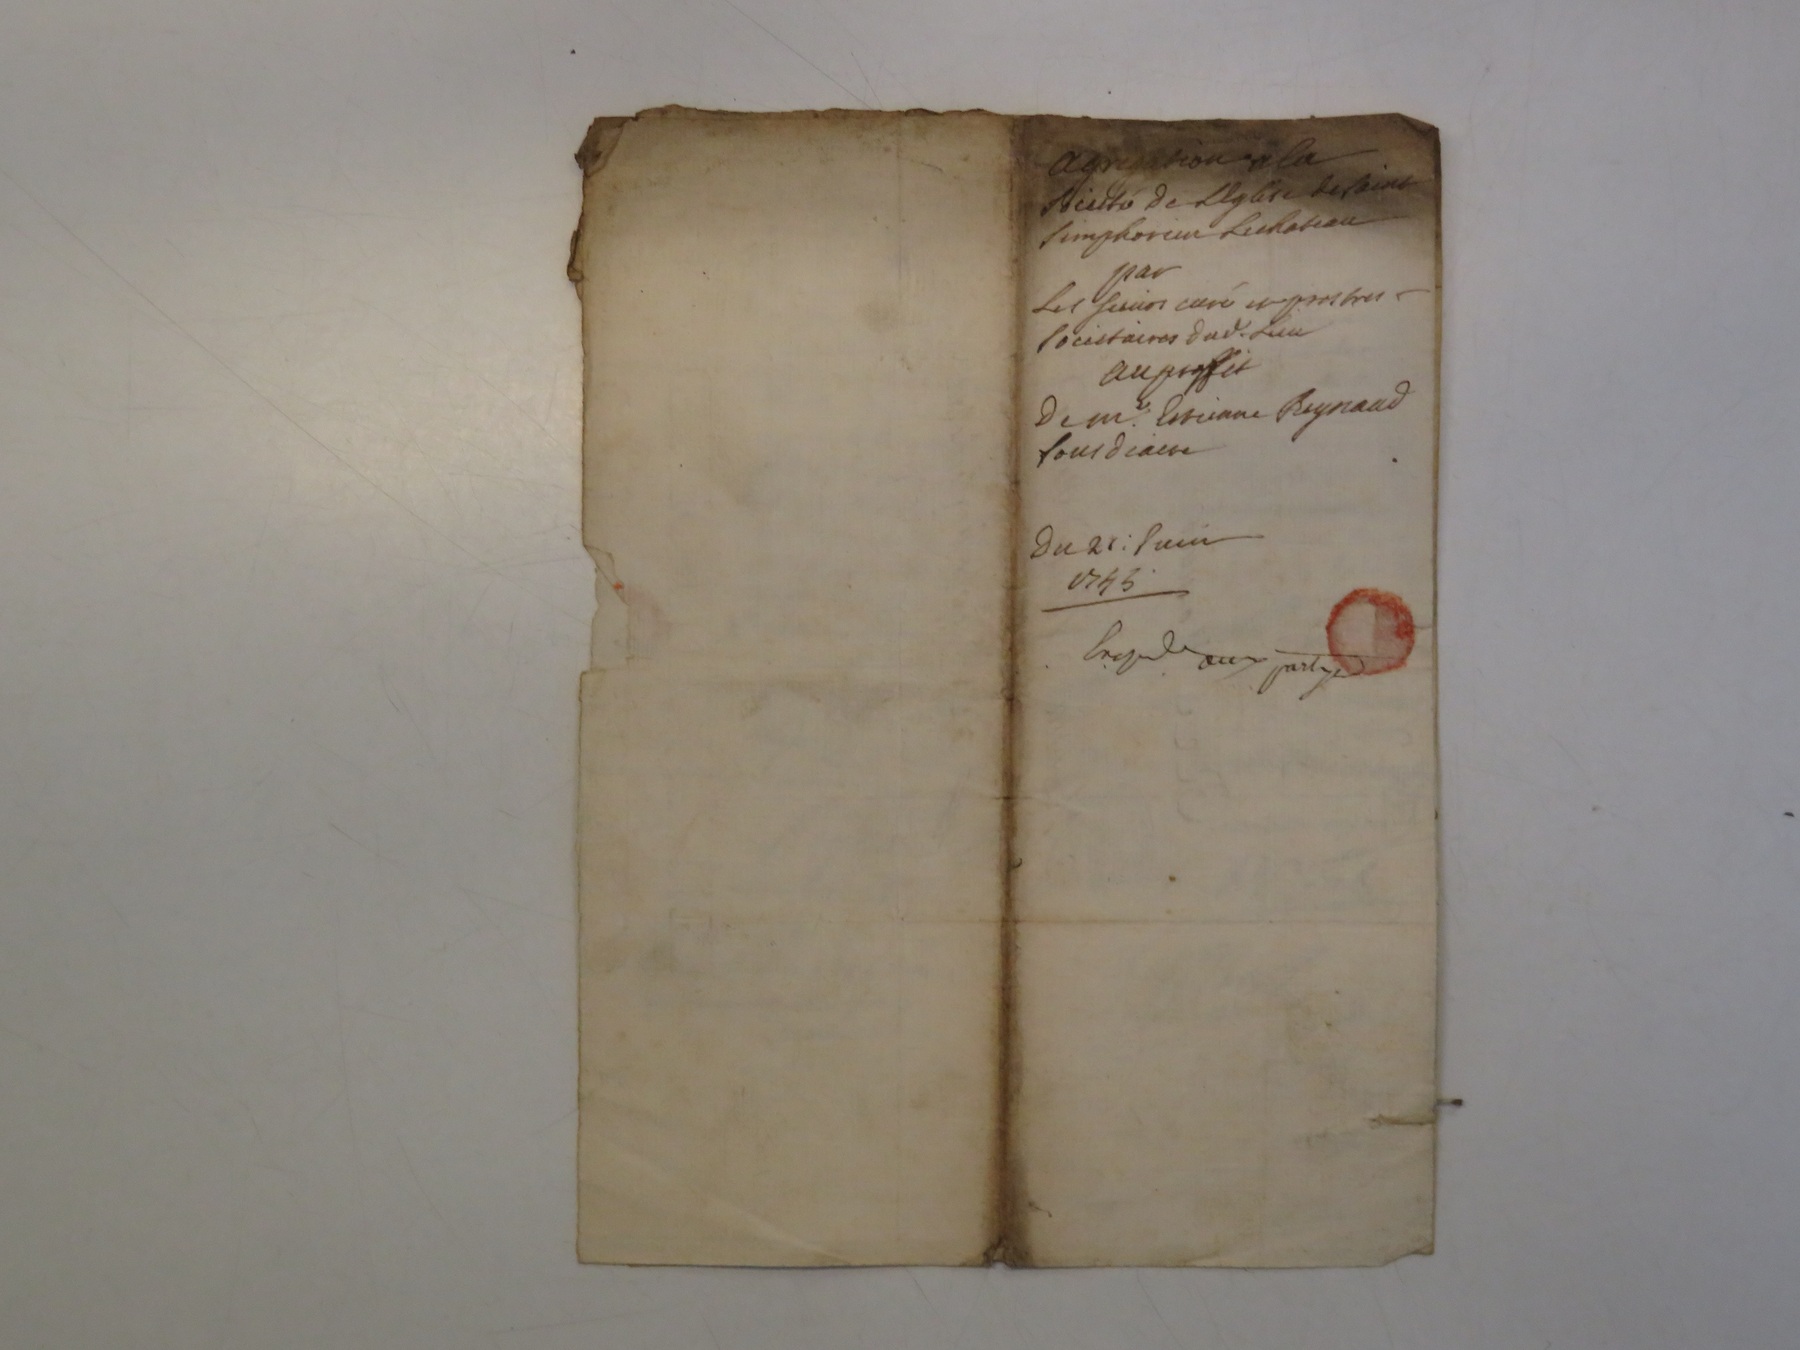 Agregation a la
Societé de L'Eglise de Saint
Simphorien Lechateau
par
Les sieurs curé et prestres
Societaires dud. Lieu
au proffit
De mr. Estienne Reynaud
sousdiacre
Du 21: Juin
1745
aux partyes